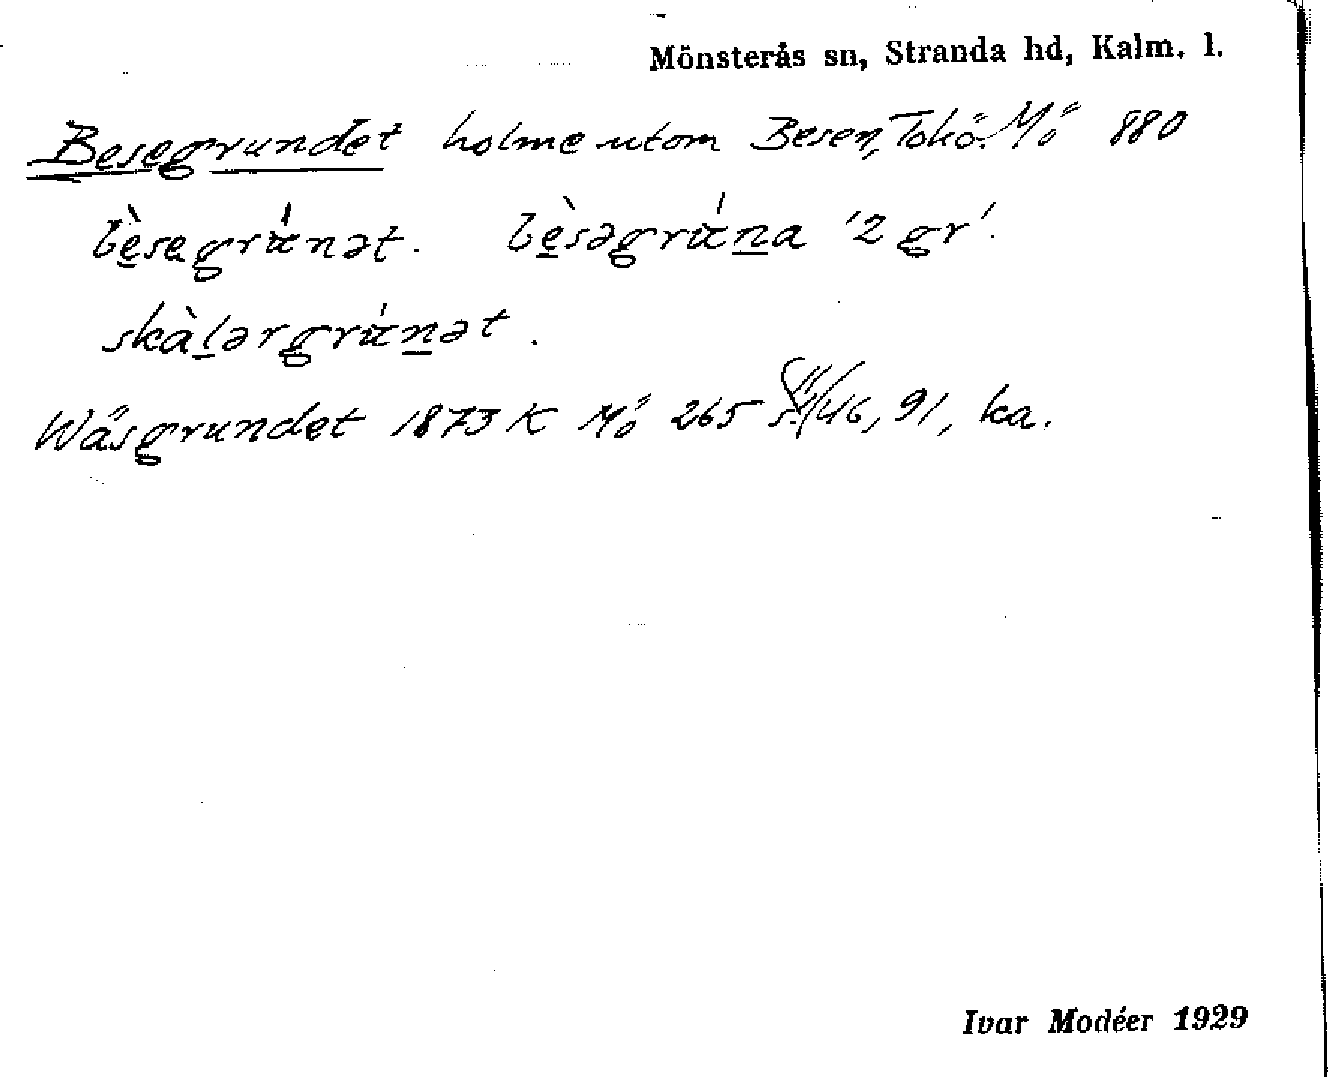 Mönsterås sn, Stranda hd, Kalm. l.
Besegrundet holme utom Besen, Tokö. Mö 880
bèsegrúnət. bèsəgrúna '2 gr'.
skàlərgrúnət.
Wåsgrundet 1873 K Mö 265 46, 91, ka.
Ivar Modéer 1929